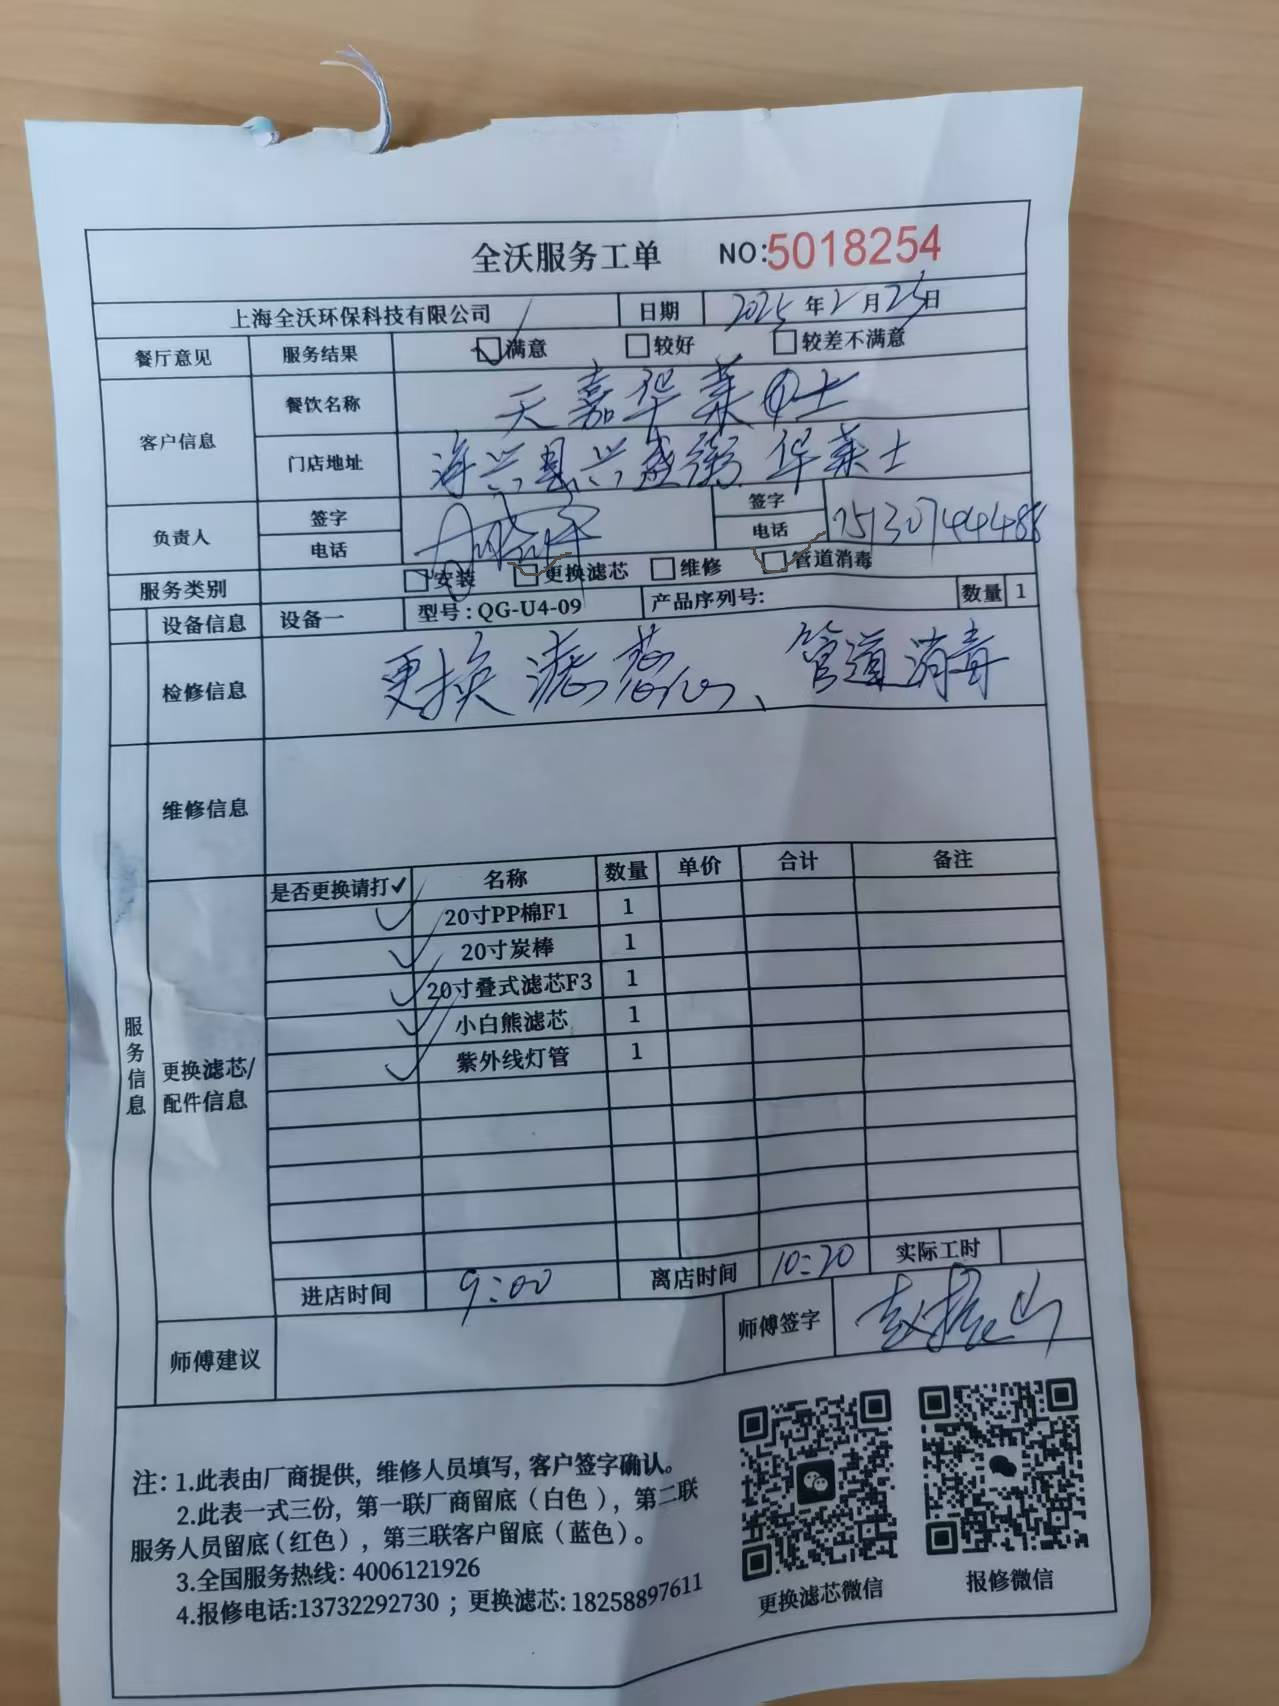 全沃服务工单 NO:5018254
上海全沃环保科技有限公司 日期 2025年2月25日
餐厅意见 服务结果 满意 较好 较差不满意
客户信息 餐饮名称 天嘉华莱士
门店地址 海兴县兴盛街 华莱士
负责人 签字 签字
电话 电话 15130744488
服务类别 安装 更换滤芯 维修 管道消毒
设备信息 设备一 型号:QG-U4-09 产品序列号: 数量 1
检修信息 更换滤芯、管道消毒
维修信息
服务信息
更换滤芯/配件信息
是否更换请打✓ 名称 数量 单价 合计 备注
✓ 20寸PP棉F1 1
✓ 20寸炭棒 1
✓ 20寸叠式滤芯F3 1
✓ 小白熊滤芯 1
✓ 紫外线灯管 1
进店时间 9:00 离店时间 10:20 实际工时
师傅建议 师傅签字 赵振山
注:1.此表由厂商提供,维修人员填写,客户签字确认。
2.此表一式三份,第一联厂商留底(白色),第二联
服务人员留底(红色),第三联客户留底(蓝色)。
3.全国服务热线:4006121926
4.报修电话:13732292730;更换滤芯:18258897611
更换滤芯微信 报修微信